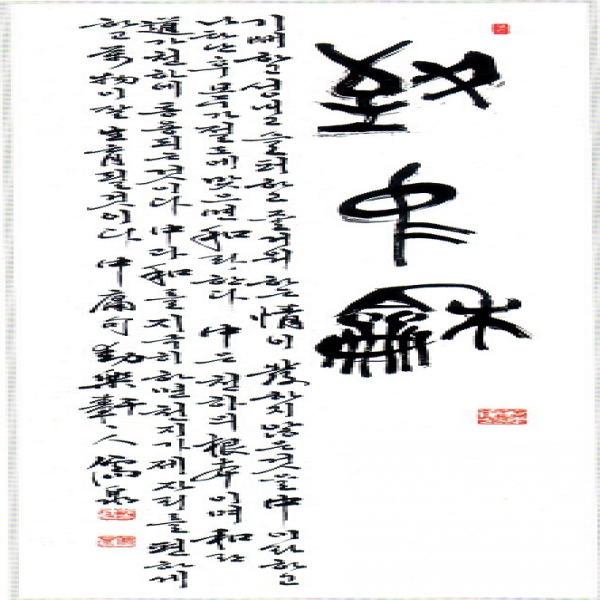 致中和
기뻐하고 성내고 슬퍼하고 즐거워하는 情이 發하지 않는것을 中이라하고
나타난 후 모두 절도에 맞으면 和라 한다 中은 천하의 根本이며 和는
道가 천하에 통용되는 것이다 中과 和를 지극히 하면 천지가 제자리를 편하게
하고 萬物이 잘 生育될것이다 中庸句